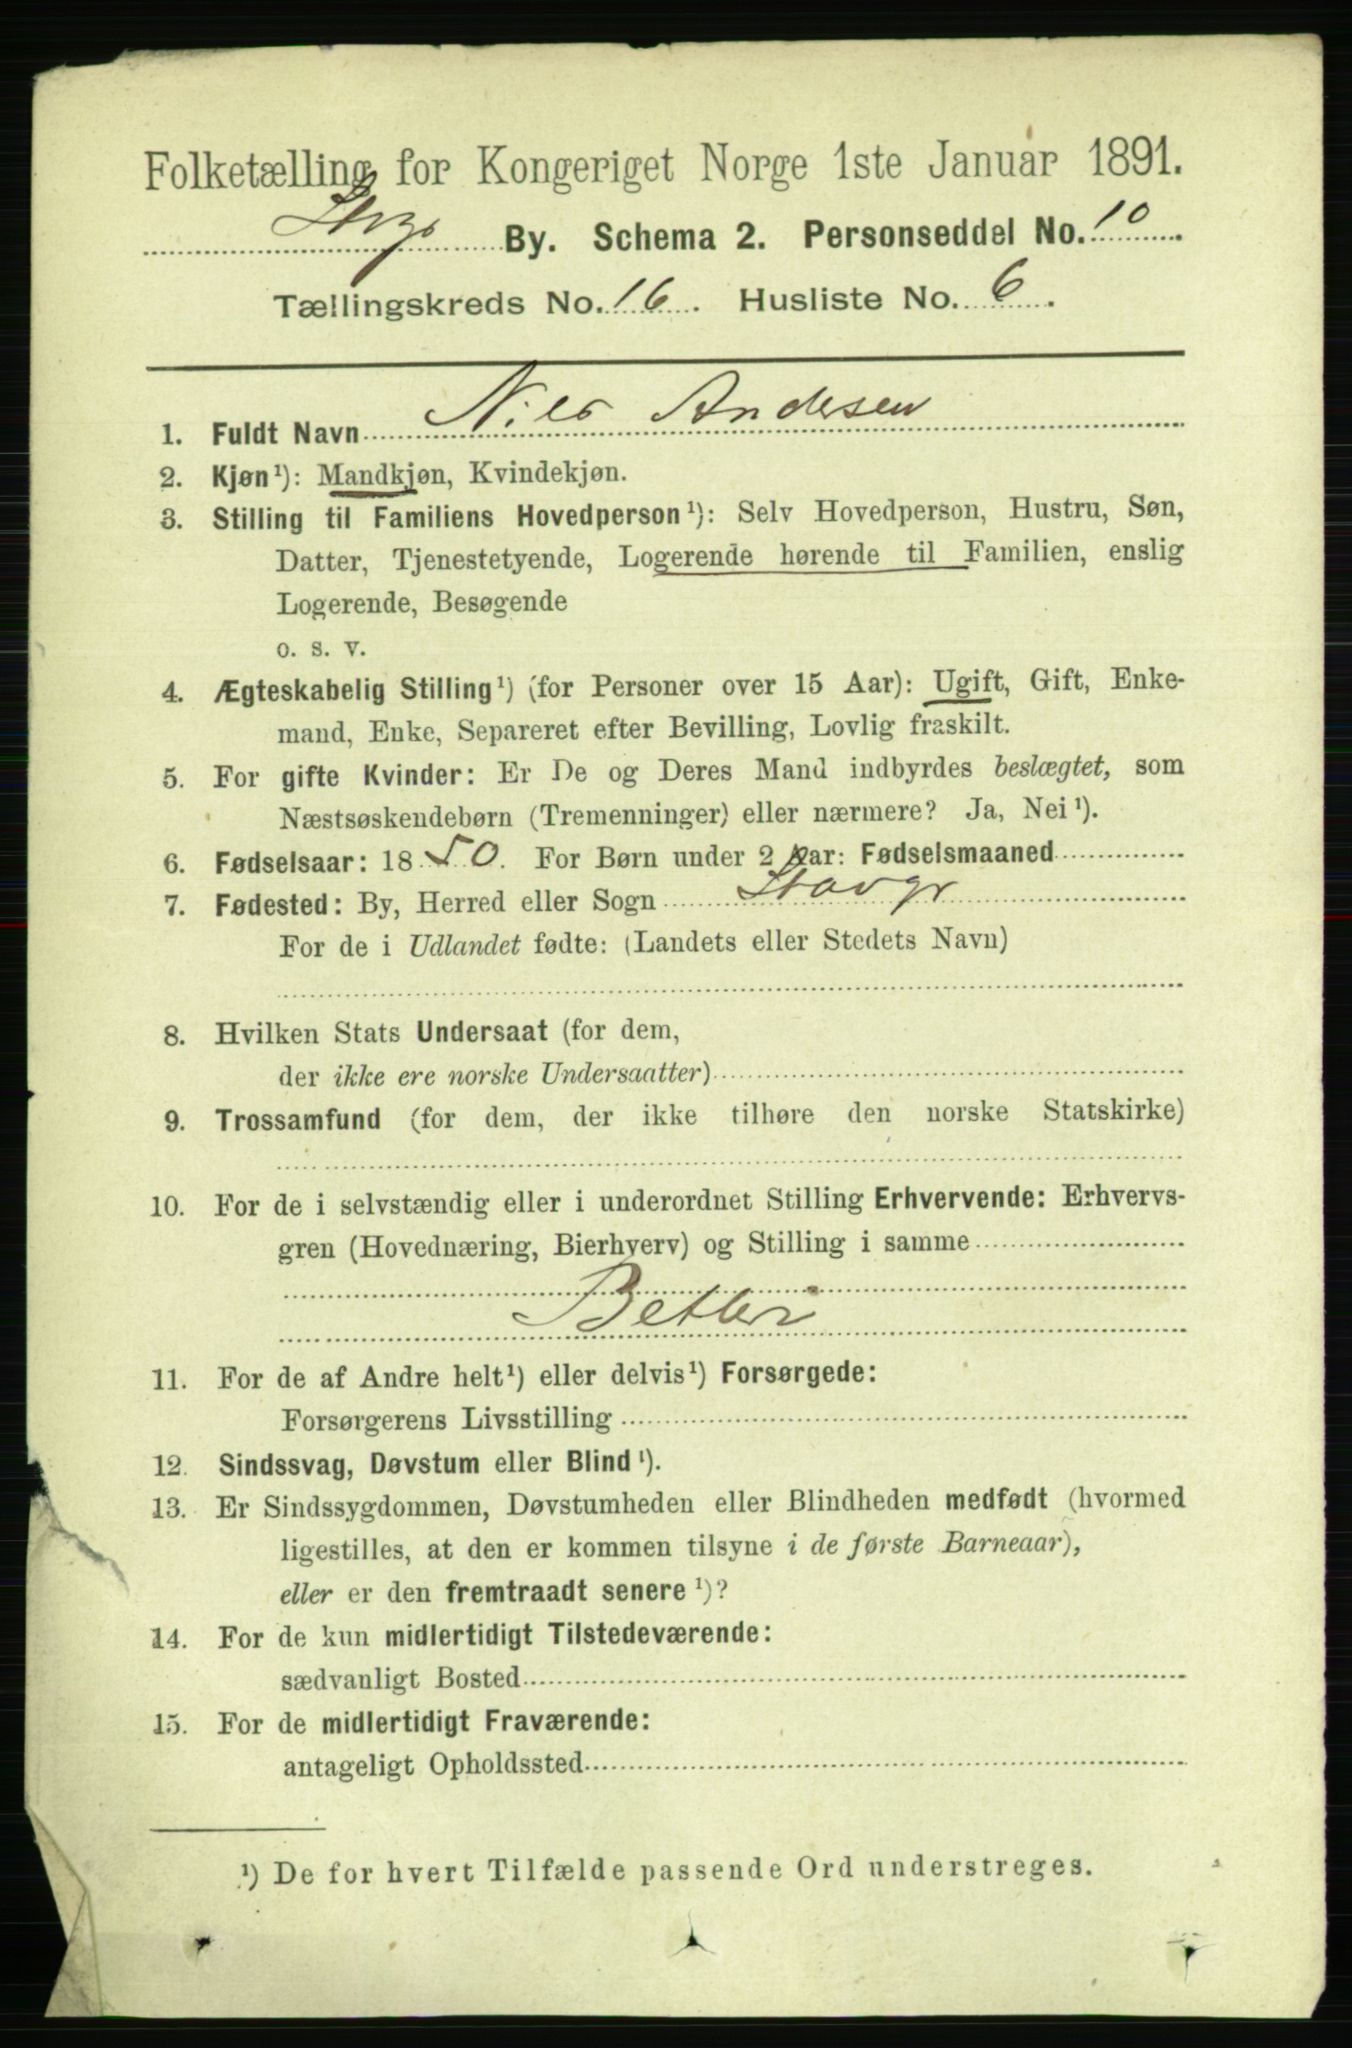 Folketælling for Kongeriget Norge 1ste Januar 1891.
By. Schema 2. Personseddel No. 10
Tællingskreds No. 16. Husliste No. 6.
1. Fuldt Navn Nils Andersen
2. Kjøn¹): Mandkjøn, Kvindekjøn.
3. Stilling til Familiens Hovedperson¹): Selv Hovedperson, Hustru, Søn,
Datter, Tjenestetyende, Logerende hørende til Familien, enslig
Logerende, Besøgende
o. s. v.
4. Ægteskabelig Stilling¹) (for Personer over 15 Aar): Ugift, Gift, Enke-
mand, Enke, Separeret efter Bevilling, Lovlig fraskilt.
5. For gifte Kvinder: Er De og Deres Mand indbyrdes beslægtet, som
Næstsøskendebørn (Tremenninger) eller nærmere? Ja, Nei¹).
6. Fødselsaar: 1850. For Børn under 2 Aar: Fødselsmaaned
7. Fødested: By, Herred eller Sogn Stavgr
For de i Udlandet fødte: (Landets eller Stedets Navn)
8. Hvilken Stats Undersaat (for dem,
der ikke ere norske Undersaatter)
9. Trossamfund (for dem, der ikke tilhøre den norske Statskirke)
10. For de i selvstændig eller i underordnet Stilling Erhvervende: Erhvervs-
gren (Hovednæring, Bierhverv) og Stilling i samme
Betler
11. For de af Andre helt¹) eller delvis¹) Forsørgede:
Forsørgerens Livsstilling
12. Sindssvag, Døvstum eller Blind¹).
13. Er Sindssygdommen, Døvstumheden eller Blindheden medfødt (hvormed
ligestilles, at den er kommen tilsyne i de første Barneaar),
eller er den fremtraadt senere¹)?
14. For de kun midlertidigt Tilstedeværende:
sædvanligt Bosted
15. For de midlertidigt Fraværende:
antageligt Opholdssted
¹) De for hvert Tilfælde passende Ord understreges.